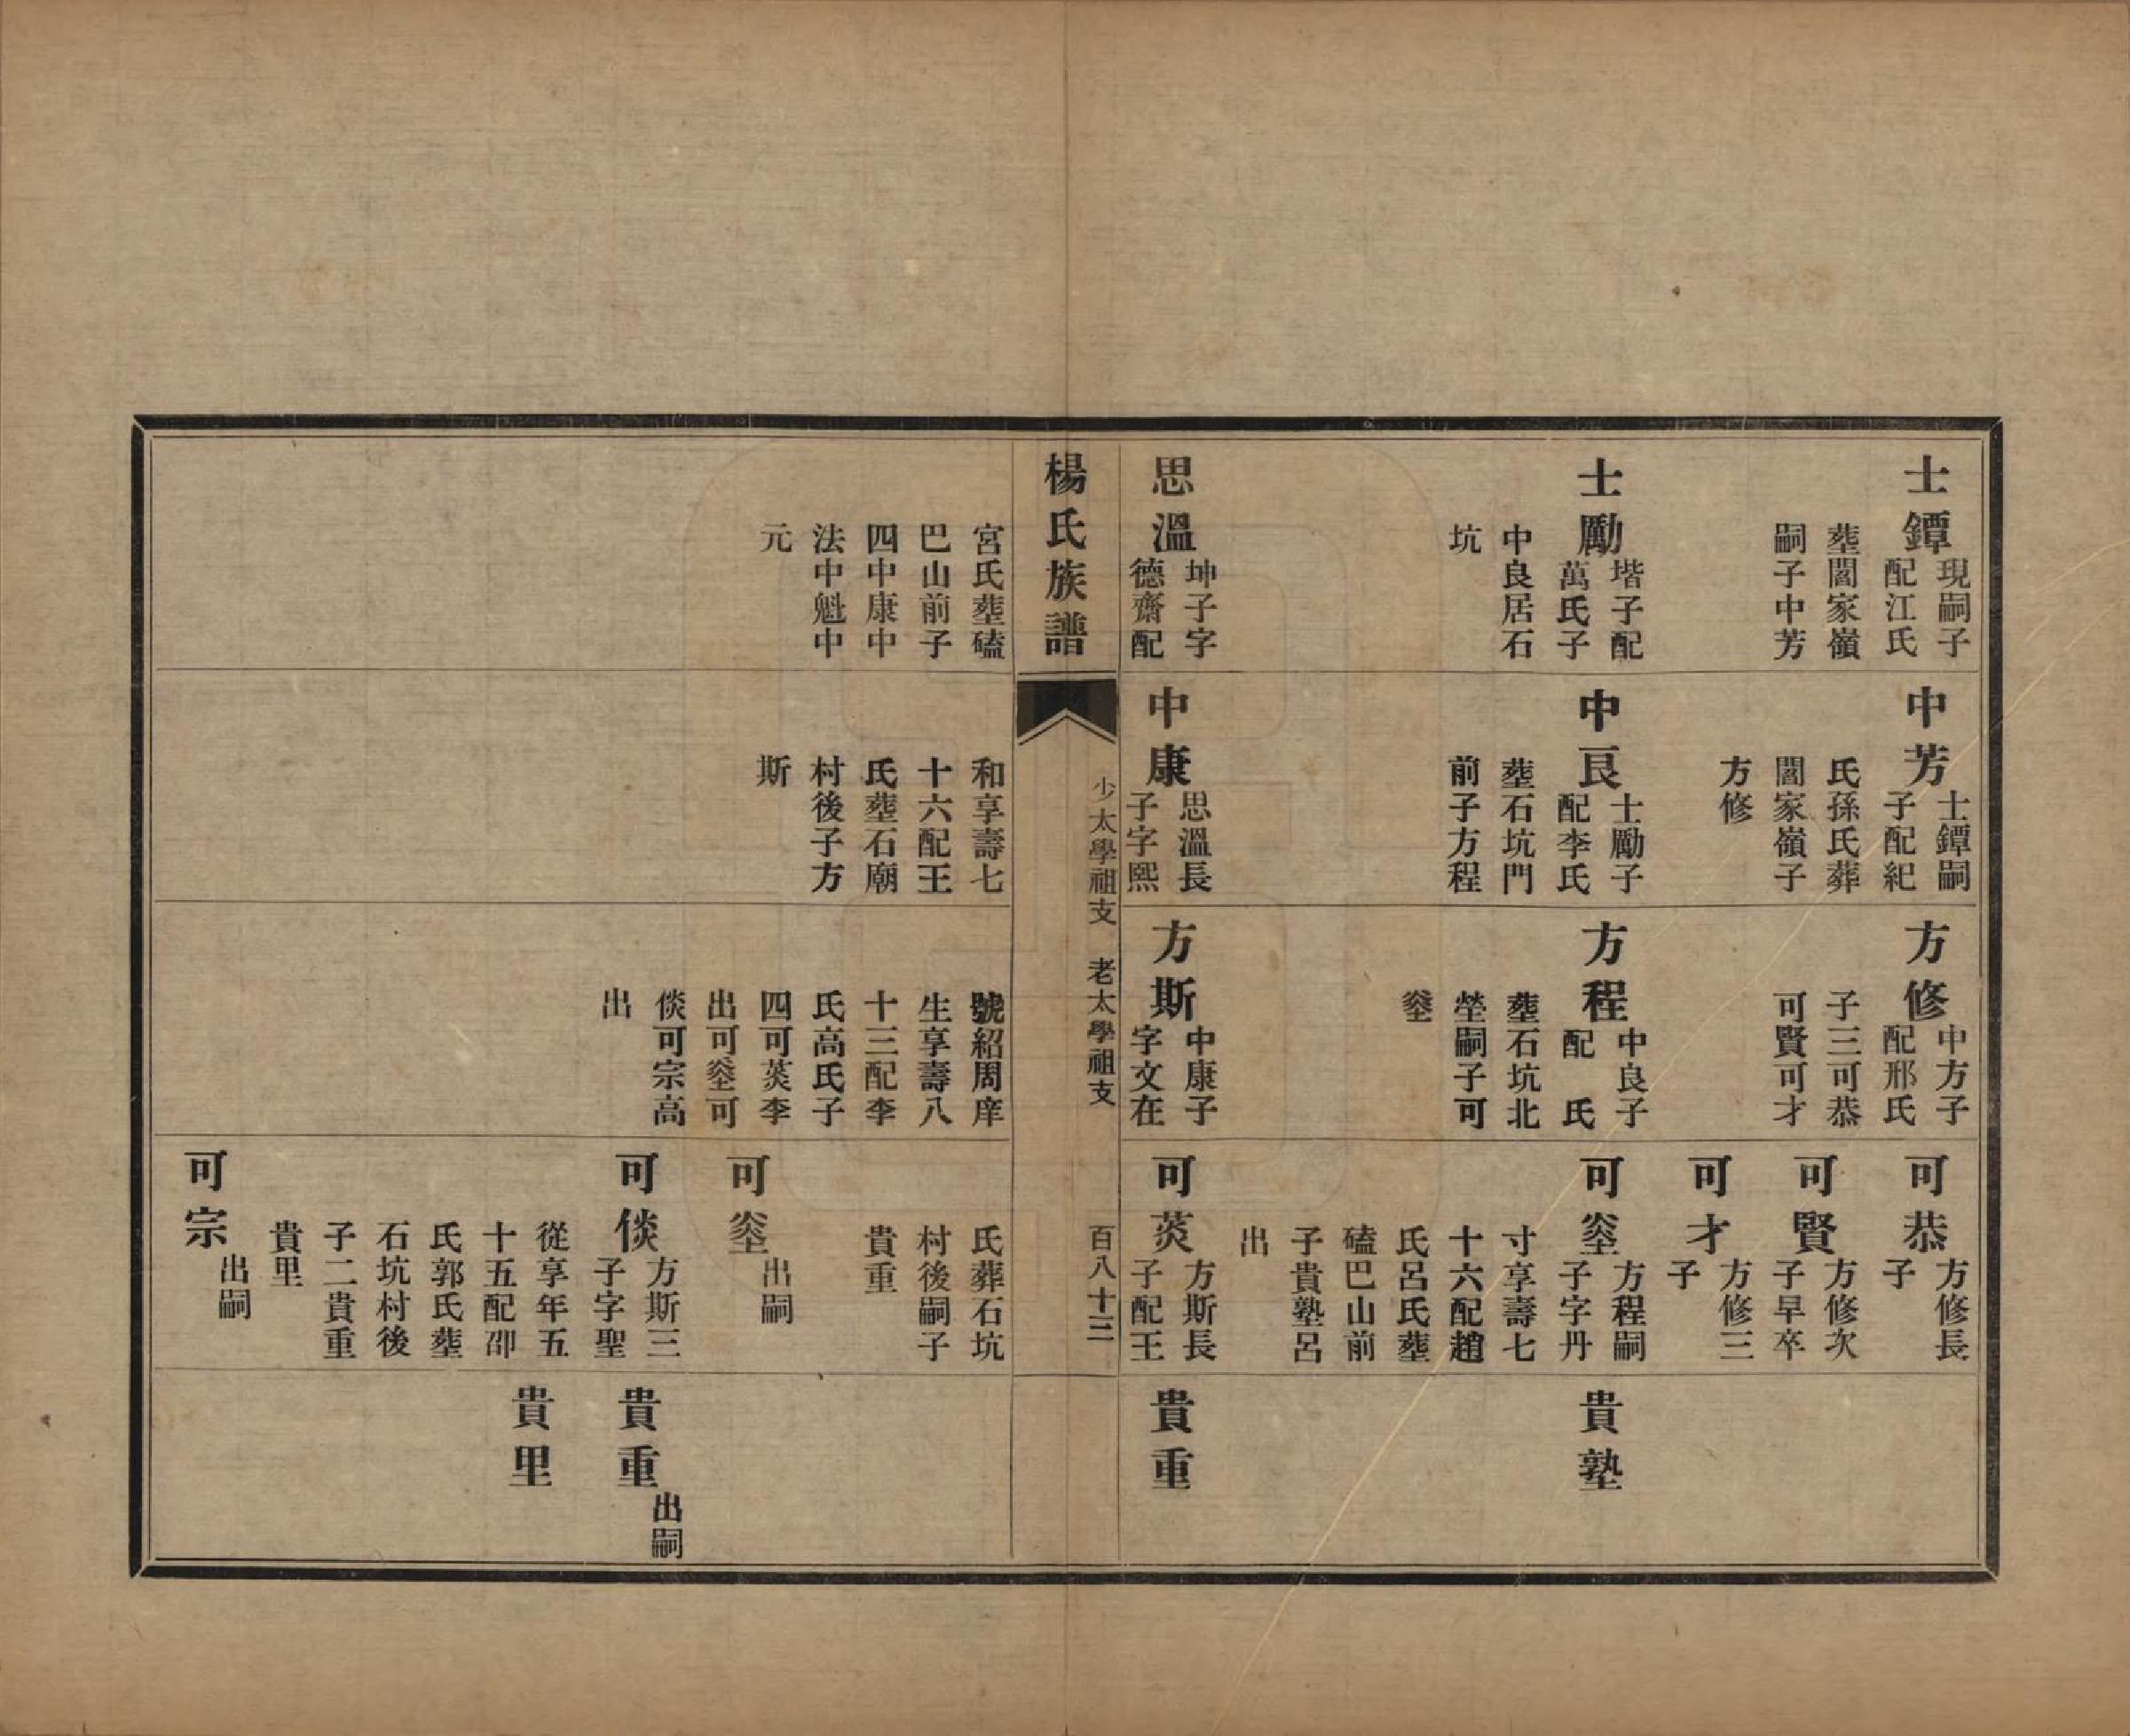 士鐔
現嗣子
配江氏
塟閻家嶺
嗣子中芳
士勵
堦子配
萬氏子
中良居石
坑
思溫
坤子字
德齋配
中芳
士鐔嗣
子配紀
氏孫氏葬
閻家嶺子
方修
中良
士勵子
配李氏
塟石坑門
前子方程
中康
思溫長
子字熙
方修
中方子
配邢氏
子三可恭
可賢可才
方程
中良子
配　氏
塟石坑北
塋嗣子可
烾
方斯
中康子
字文在
可恭
方修長
子
可賢
方修次
子早卒
可才
方修三
子
可烾
方程嗣
子字丹
寸享壽七
十六配趙
氏呂氏塟
磕巴山前
子貴塾呂
出
可焂
方斯長
子配王
貴塾
貴重
楊氏族譜
少太學祖支　老太學祖支
百八十三
宮氏塟磕
巴山前子
四中康中
法中魁中
元
和享壽七
十六配王
氏塟石廟
村後子方
斯
號紹周庠
生享壽八
十三配李
氏高氏子
四可焂李
出可烾可
倓可宗高
出
氏葬石坑
村後嗣子
貴重
可烾
出嗣
可倓
方斯三
子字聖
從享年五
十五配邵
氏郭氏塟
石坑村後
子二貴重
貴里
可宗
出嗣
貴重
出嗣
貴里